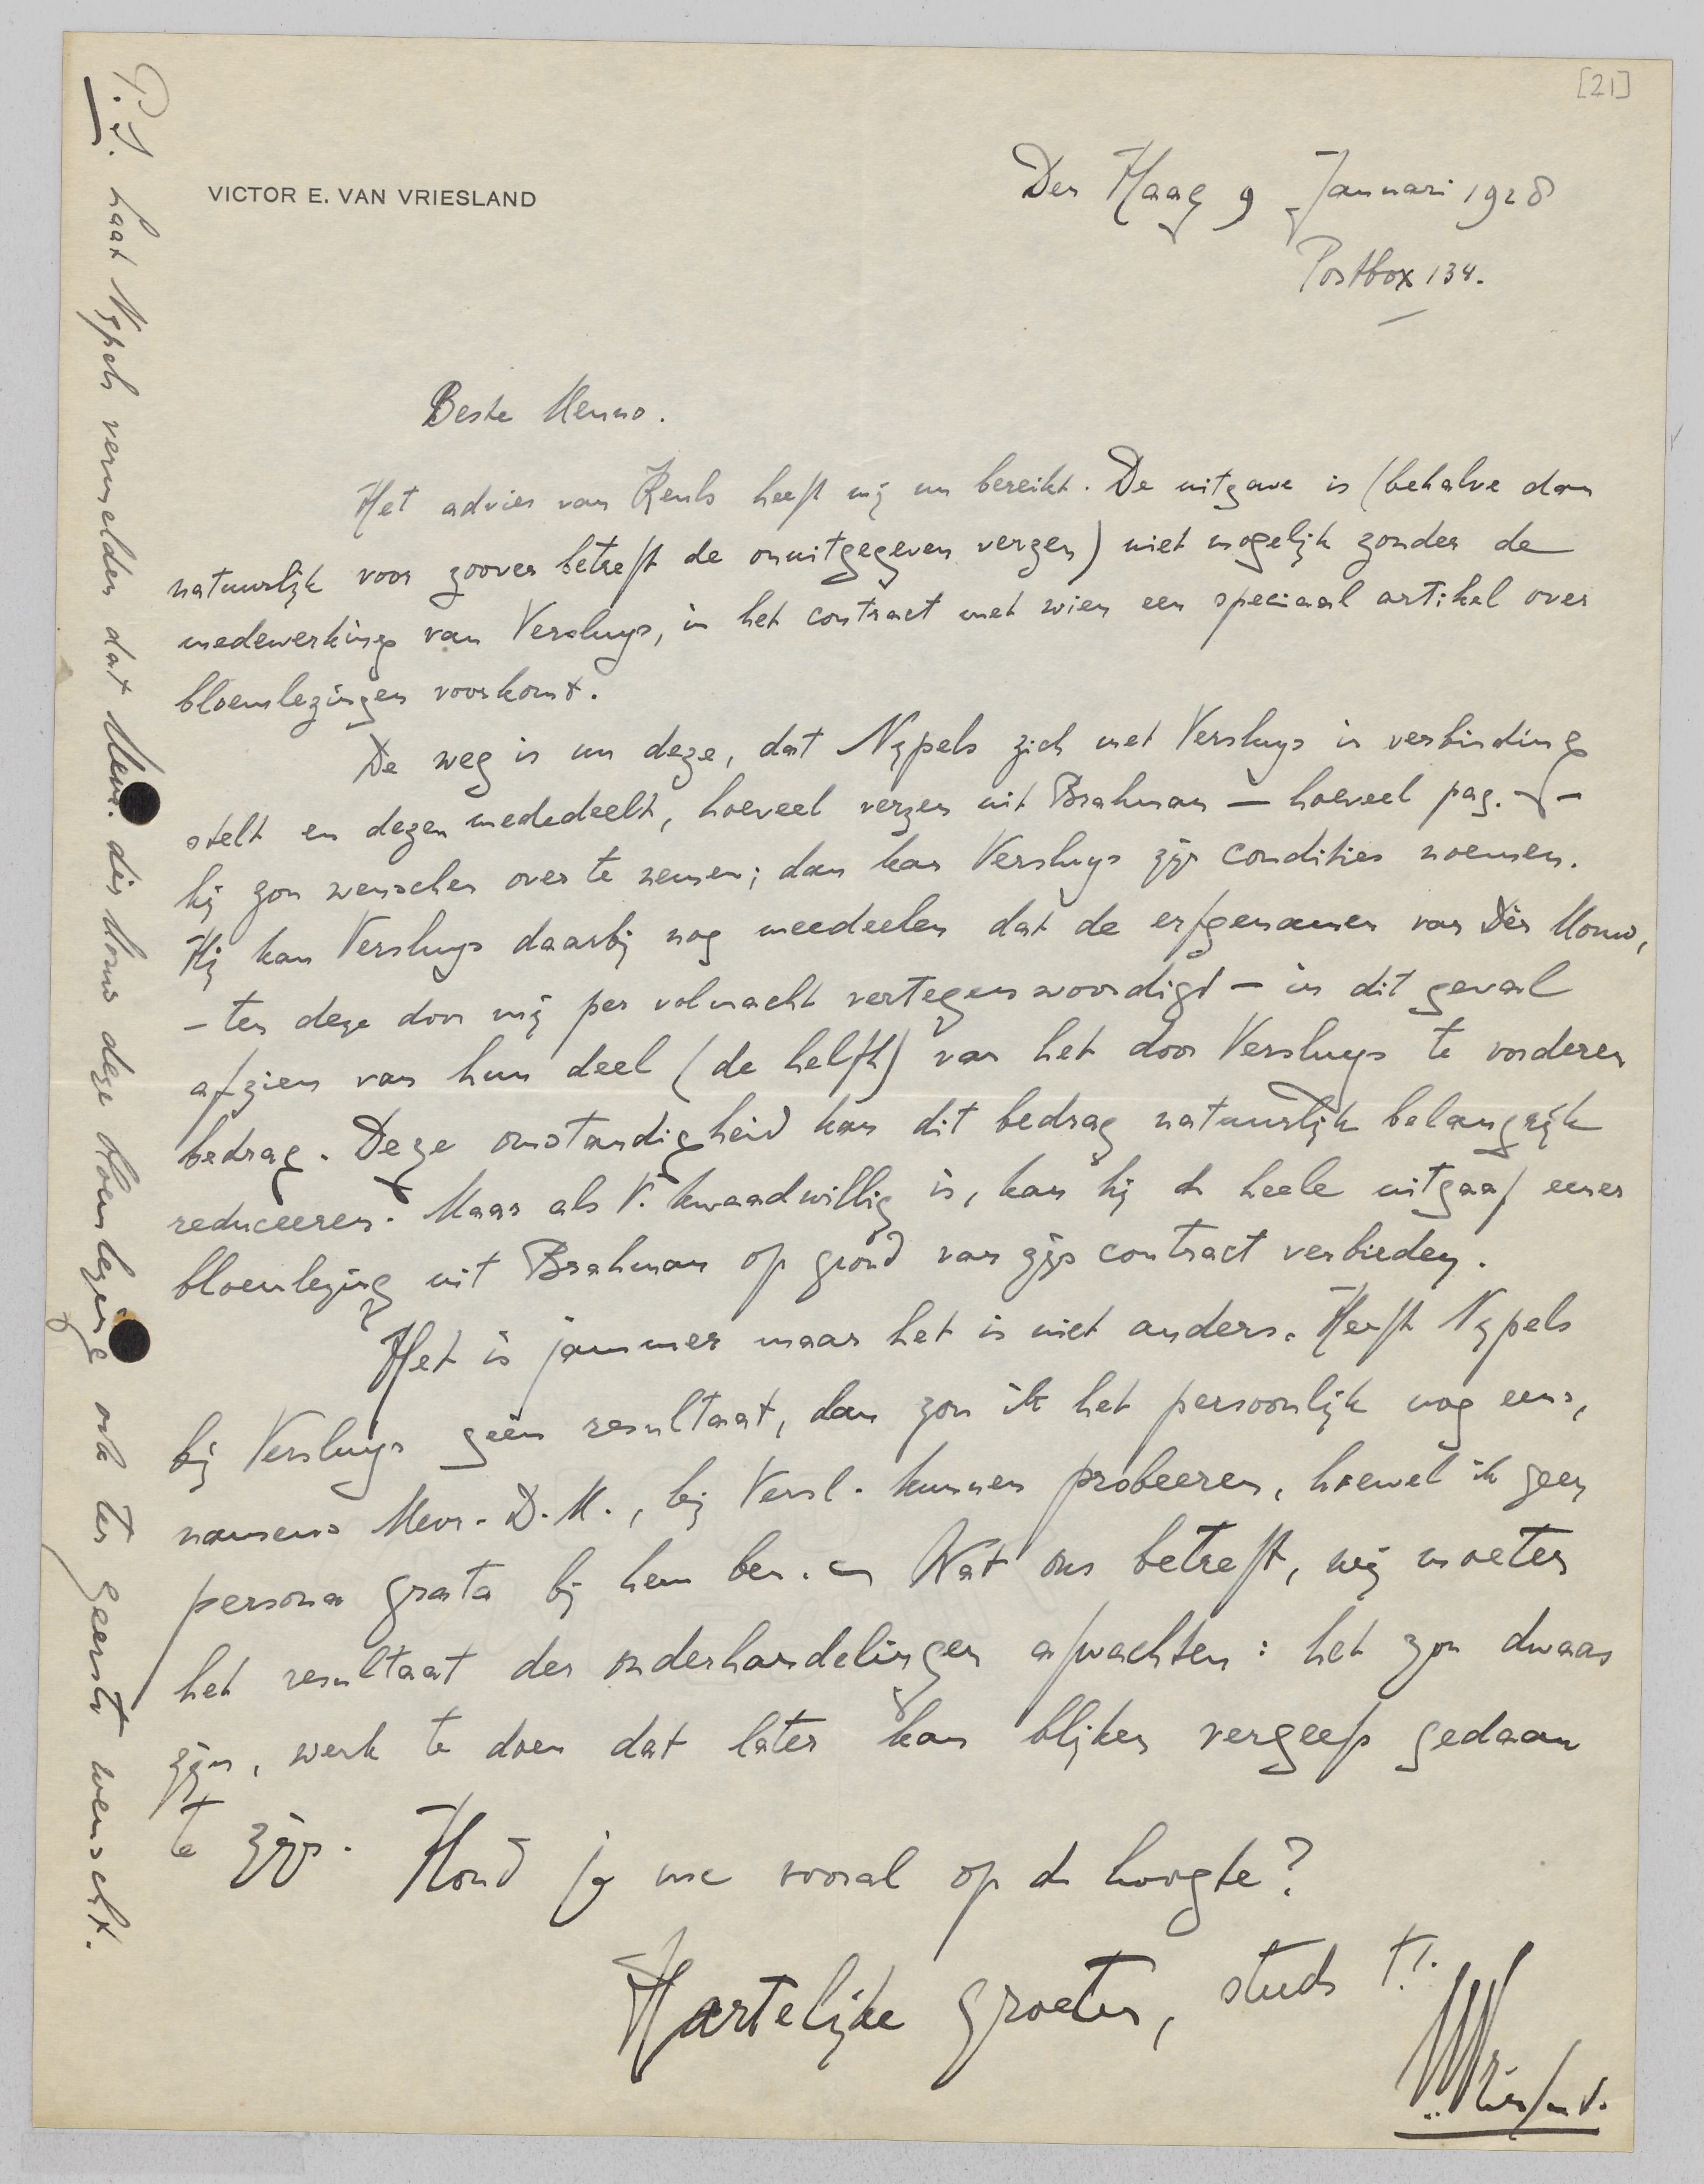 [21]
VICTOR E. VAN VRIESLAND
Den Haag 9 Januari 1928
Postbox 134.
Beste Menno.
Het advies van Reuls heeft mij nu bereikt. De uitgave is (behalve dan
natuurlijk voor zoover betreft de onuitgegeven verzen) niet mogelijk zonder de
medewerking van Versluys, in het contract met wien een speciaal artikel over
bloemlezingen voorkomt.
De weg is nu deze, dat Nypels zich met Versluys in verbinding
stelt en dezen mededeelt, hoeveel verzen uit Brahman — hoeveel pag. —
hij zou wenschen over te nemen; dan kan Versluys zijn condities noemen.
Hij kan Versluys daarbij nog meedeelen dat de erfgenamen van Dèr Mouw,
— ten deze door mij per volmacht vertegenwoordigd — in dit geval
afzien van hun deel (de helft) van het door Versluys te vorderen
bedrag. Deze omstandigheid kan dit bedrag natuurlijk belangrijk
reduceeren. Maar als V. kwaadwillig is, kan hij de heele uitgaaf eener
bloemlezing uit Brahman op grond van zijn contract verbieden.
Het is jammer maar het is niet anders. Heeft Nypels
bij Versluys géén resultaat, dan zou ik het persoonlijk nog eens,
namens Mevr. D. M., bij Versl. kunnen probeeren, hoewel ik geen
persona grata bij hem ben. — Wat ons betreft, wij moeten
het resultaat der onderhandelingen afwachten: het zou dwaas
zijn, werk te doen dat later kan blijken vergeefs gedaan
te zijn. Houd je me vooral op de hoogte?
Hartelijke groeten, steeds t.t.
P.S. Laat Nypels vermelden dat Mevr. dèr Mouw deze bloemlezing ook ten zeerste wenscht.